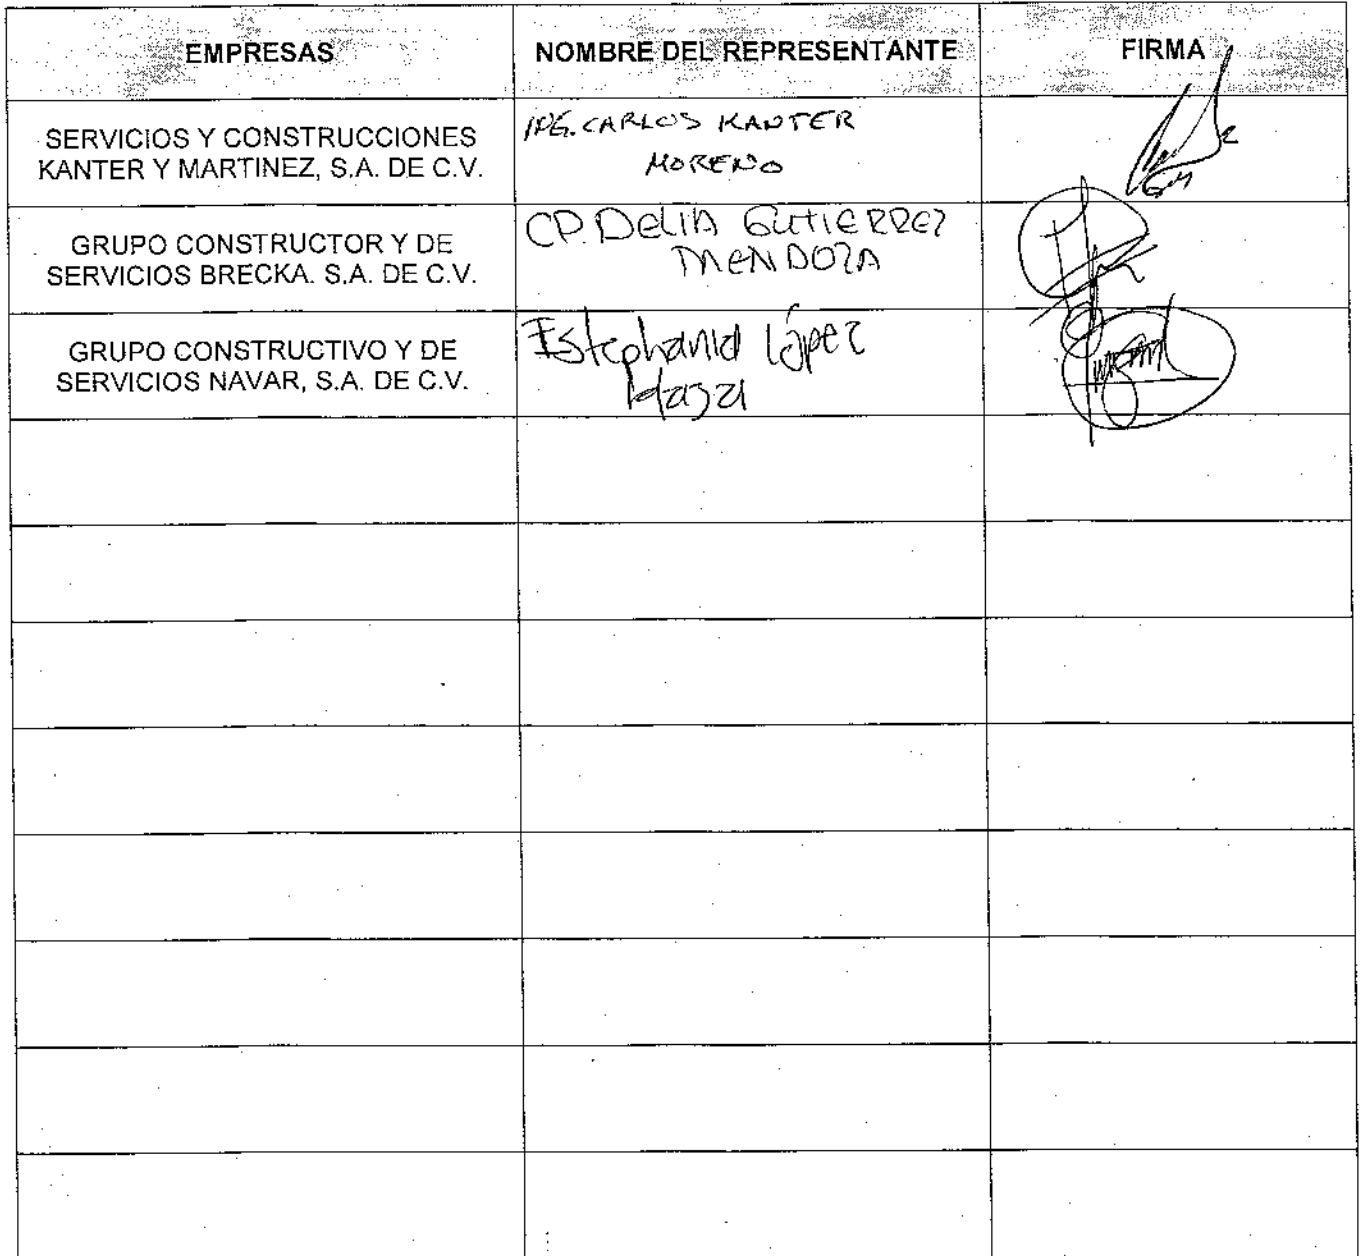 EMPRESAS
NOMBRE DEL REPRESENTANTE
FIRMA
SERVICIOS Y CONSTRUCCIONES
KANTER Y MARTINEZ, S.A. DE C.V.
ING. CARLOS KANTER
MORENO
GRUPO CONSTRUCTOR Y DE
SERVICIOS BRECKA. S.A. DE C.V.
CP. DELIA GUTIERREZ
MENDOZA
GRUPO CONSTRUCTIVO Y DE
SERVICIOS NAVAR, S.A. DE C.V.
Estephania López